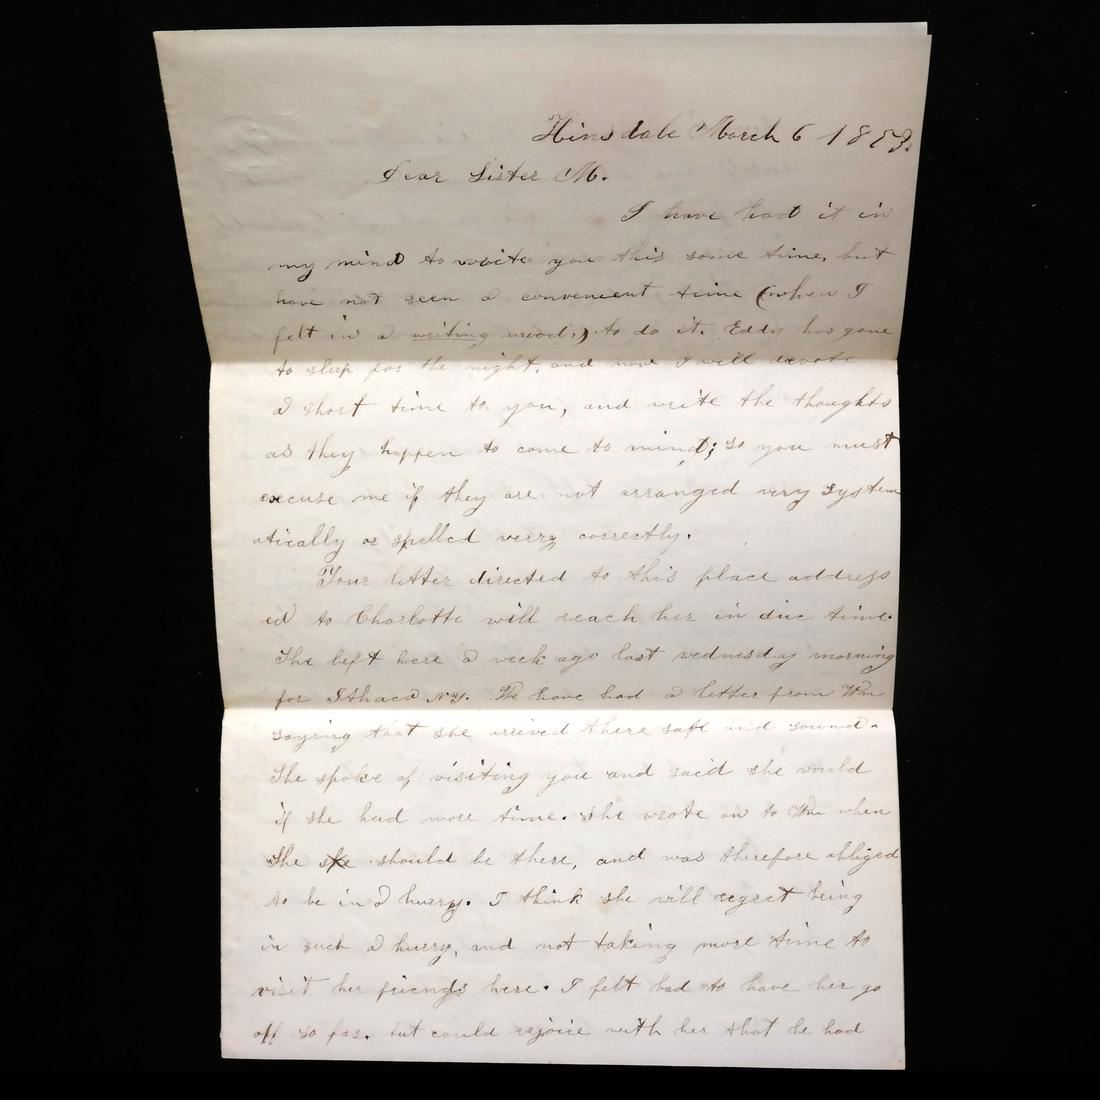 Hinsdale March 6 1853.
Dear Sister M.
I have had it in
my mind to write you this some time, but
have not seen a convenient time (when I
felt in a writing mood,) to do it. Eddy has gone
to sleep for the night, and now I will devote
a short time to you, and write the thoughts
as they happen to come to mind; so you must
excuse me if they are not arranged very system
atically or spelled verry correctly.
Your letter directed to this place address
ed to Charlotte will reach her in due time.
She left here a week ago last wednesday morning
for Ithaca N.Y. We have had a letter from Wm
saying that she arrived there safe and sound.
She spoke of visiting you and said she would
if she had more time. She wrote on to Wm when
She she should be there, and was therefore obliged
to be in a hurry. I think she will regret being
in such a hurry, and not taking more time to
visit her friends here. I felt bad to have her go
off so far. but could rejoice with her that he had